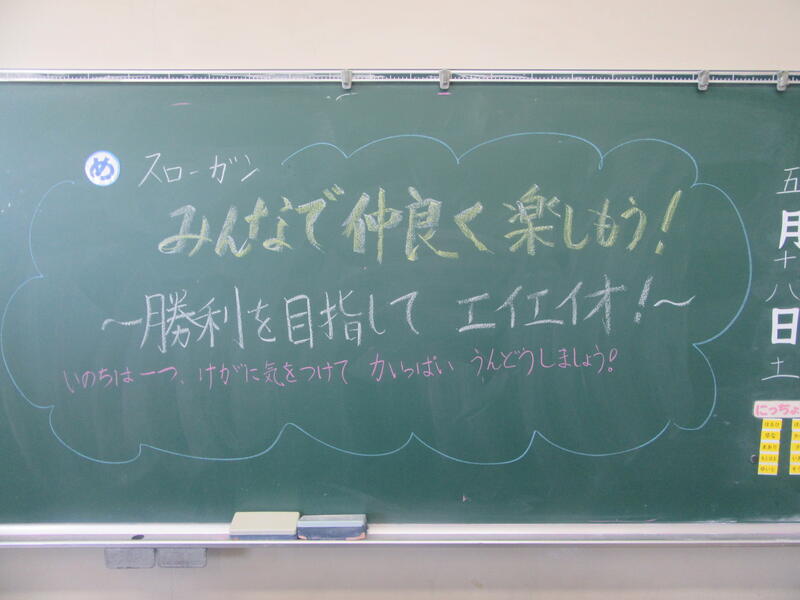 め スローガン
みんなで仲良く楽しもう!
～勝利を目指して エイエイオー!～
いのちは一つ、けがに気をつけて 力いっぱい うんどうしましょう!
五月十八日 土
にっちょ